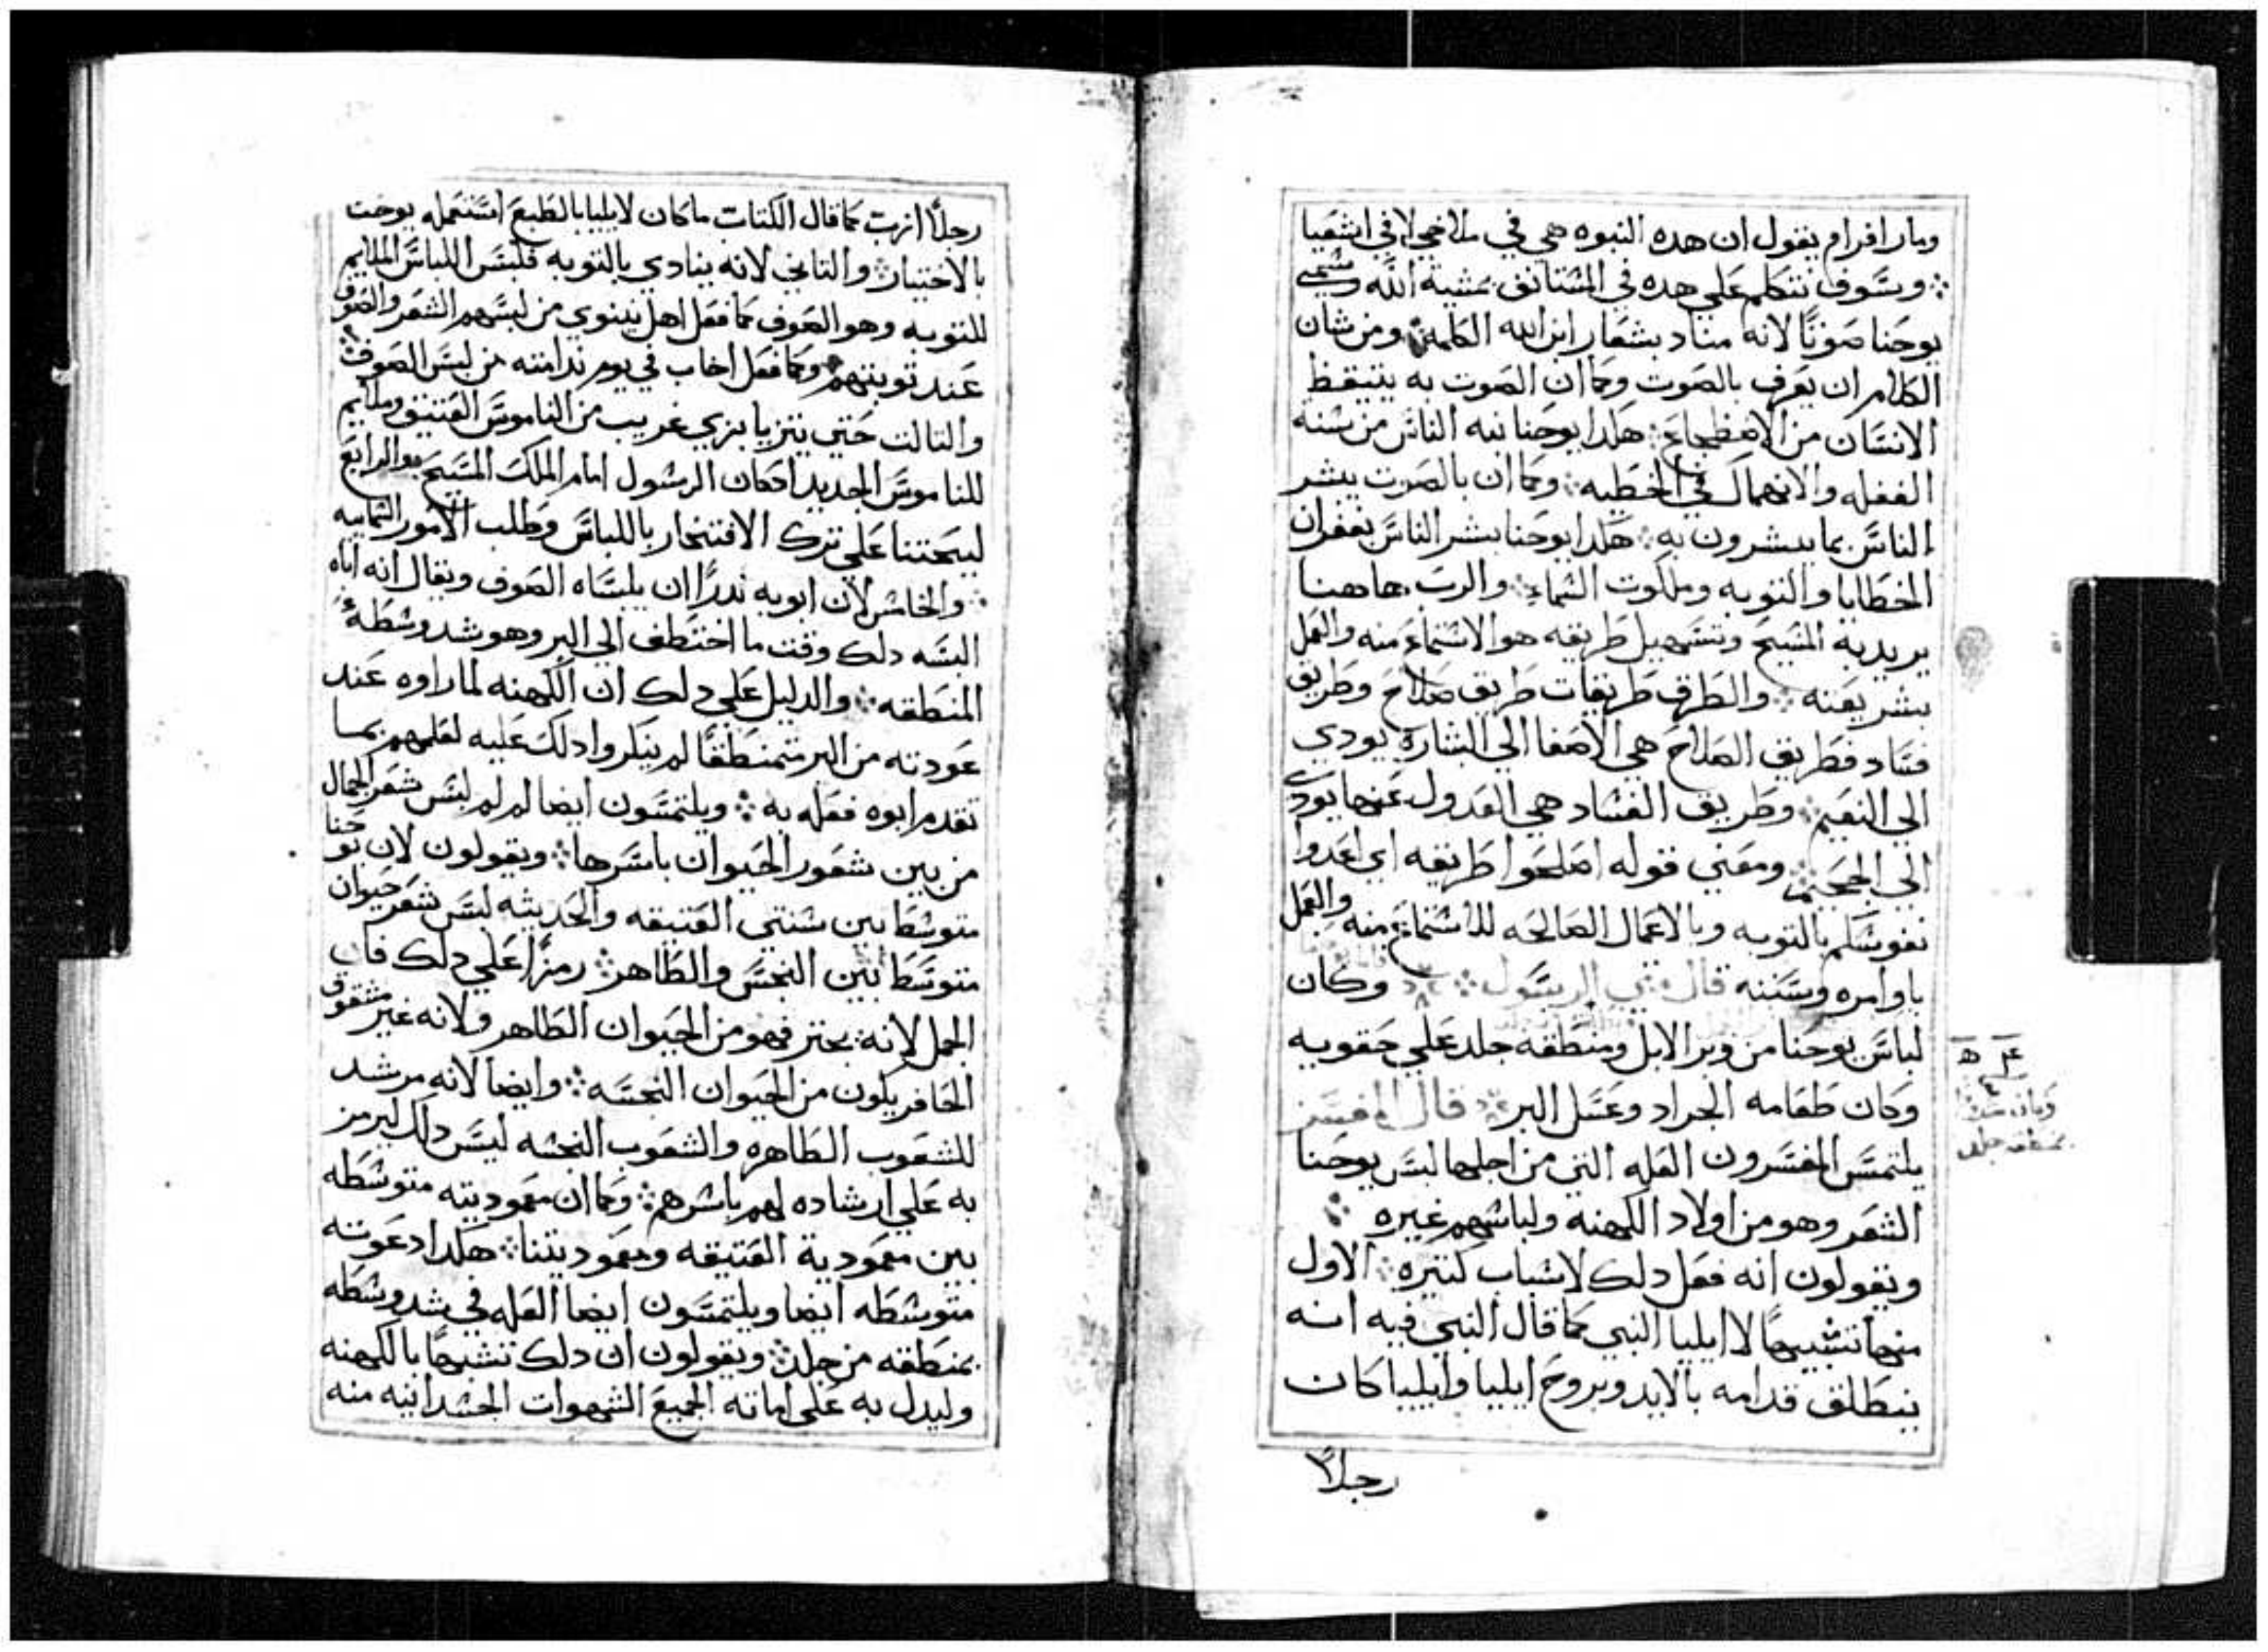 ومار افرام يقول ان هده النبوه هي في ملاخي لا في اشعيا
وسوف نتكلم علي هده في المستانف بمشية الله وسمي
يوحنا صوتًا لانه مناد بشعار ابن الله الكلمة ومن شان
الكلام ان يعرف بالصوت وكما ان الصوت به يتيقظ
الانسان من الاضطجاع هلدا يوحنا نبه الناس من سنة
الغفله والانهماك في الخطيه وكما ان بالصوت يبشر
الناس بما يبشرون به هلدا يوحنا بشر الناس بغفران
الخطايا والتوبه وملكوت السماء والرب هاهنا
يريد به المسيح وتسهيل طريقه هو الاستماع منه والعمل
بشريعته والطرق طريقات طريق صلاح وطريق
فساد فطريق الصلاح هي الاصغا الي البشاره يودي
الي النعيم وطريق الفساد هي العدول عنها يودي
الي الجحيم ومعني قوله اصلحوا طريقه اي اعدوا
نفوسكم بالتوبه وبالاعمال الصالحه للاستماع منه والعمل
باوامره وسننه قال الرسول وكان
لباس يوحنا من وبر الابل ومنطقه جلد علي حقويه
وكان طعامه الجراد وعسل البر قال المفسر
يلتمس المفسرون العله التي من اجلها لبس يوحنا
الشعر وهو من اولاد الكهنه ولباسهم غيره
ويقولون انه فعل دلك لاسباب كتيره الاول
منها تشبيهًا لا ايليا النبي كما قال النبي فيه انه
ينطلق قدامه بالايد وبروح ايليا وايليا كان
رجلًا
رجلًا ازب كما قال الكتاب ما كان لايليا بالطبع استعمله يوحنا
بالاختيار والتاني لانه ينادي بالتوبه فلبس اللباس الملايم
للتوبه وهو الصوف كما فعل اهل نينوي من لبسهم الشعر والصوف
عند توبتهم وكما فعل اخاب في يوم ندامته من لبس الصوف
والتالت حتي يتزيا بزي غريب من الناموس العتيق وملايم
للناموس الجديد اد كان الرسول امام الملك المسيح والرابع
ليحتنا علي ترك الافتخار باللباس وطلب الامور السمايه
والخامس لان ابويه ندرًا ان يلبساه الصوف ويقال انه اباه
البسه دلك وقت ما اختطف الي البر وهو شد وسطه
المنطقه والدليل علي دلك ان الكهنه لما راوه عند
عودته من البر متمنطقًا لم ينكروا دلك عليه لعلمهم بما
تقدم ابوه فعله به ويلتمسون ايضا لم لبس شعر الجمال
من بين شعور الحيوان باسرها ويقولون لان يوحنا
متوسط بين سنتي العتيقه والحديثه لبس شعر حيوان
متوسط بين النجس والطاهر رمزًا علي دلك فان
الجمل لانه يجتر فهو من الحيوان الطاهر ولانه غير مشقوق
الحافر يكون من الحيوان النجسه وايضا لانه مرشد
للشعوب الطاهره والشعوب النجسه لبس دلك ليرمز
به علي ارشاده لهم باسرهم وكما ان معموديته متوسطه
بين معمودية العتيقه ومعموديتنا هكدا دعوته
متوسطه ايضا ويلتمسون ايضا العله في شد وسطه
بمنطقه من جلد ويقولون ان دلك تشبيهًا بالكهنه
وليدل به علي اماته الجميع الشهوات الجسدانيه منه